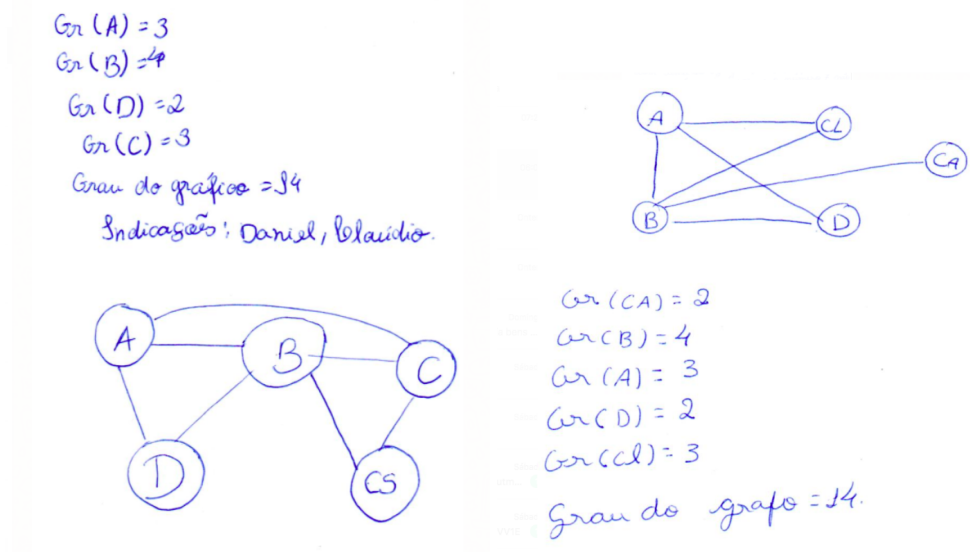 Gr(A) = 3
Gr(B) = 4
Gr(D) = 2
Gr(C) = 3
Grau do gráfico = 14
Indicações: Daniel, Claúdio.
A
B
C
D
CS
A
CL
CA
B
D
Gr(CA) = 2
Gr(B) = 4
Gr(A) = 3
Gr(D) = 2
Gr(Cl) = 3
Grau do grafo = 14.